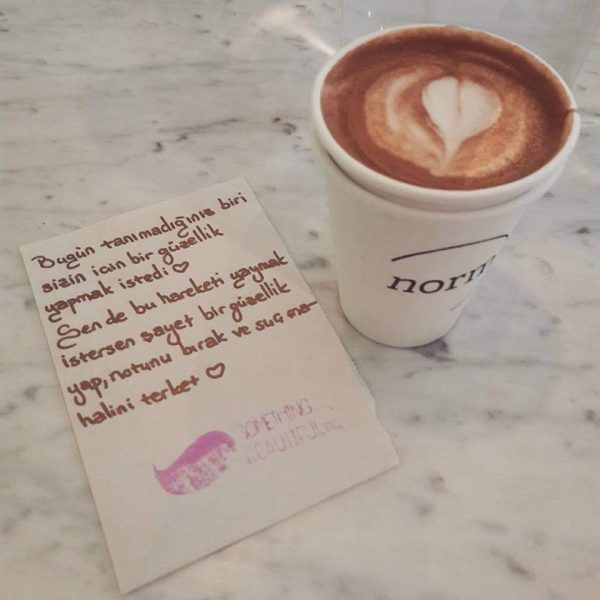 Bugün tanımadığınız biri
sizin için bir güzellik
yapmak istedi ♡
Sen de bu hareketi yaymak
istersen şayet bir güzellik
yap, notunu bırak ve suç ma-
halini terket ♡
SOMETHING
BEAUTIFUL
norm